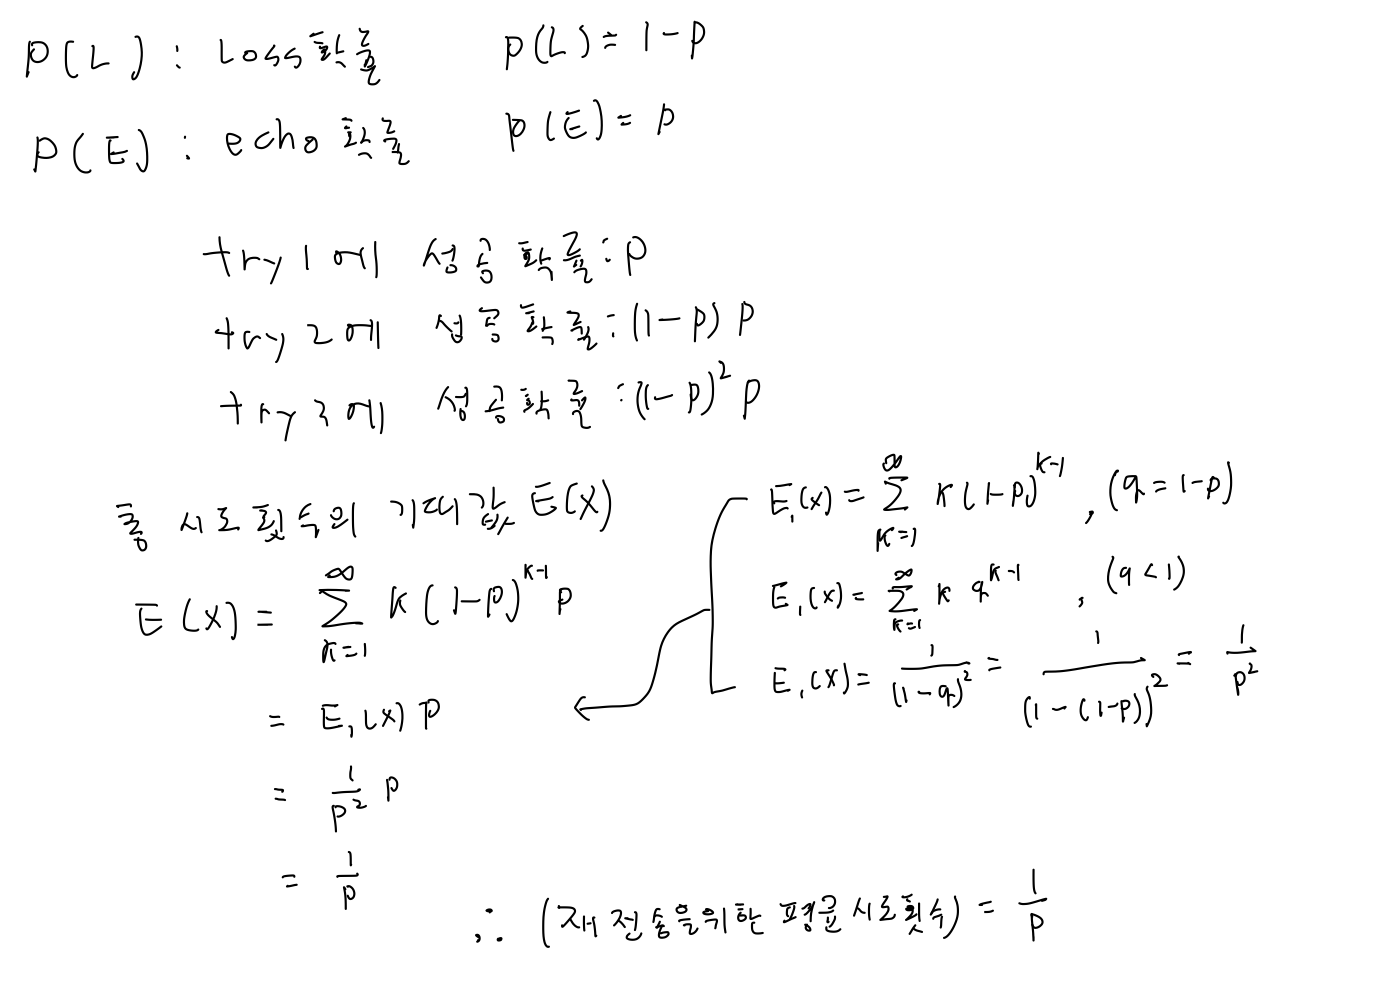 P(L) : Loss확률 P(L) = 1-P
P(E) : echo 확률 P(E) = P
try 1에 성공 확률 : P
try 2에 성공 확률 : (1-P) P
try 3에 성공 확률 : (1-P)² P
총 시도 횟수의 기대값 E(X)
E(X) = ∑_{k=1}^{∞} k (1-P)^{k-1} P
= E₁(X) P
= 1/P² P
= 1/P
E₁(X) = ∑_{k=1}^{∞} k (1-P)^{k-1} , (q = 1-P)
E₁(X) = ∑_{k=1}^{∞} k q^{k-1} , (q < 1)
E₁(X) = 1/(1-q)² = 1/(1-(1-P))² = 1/P²
∴ (재전송을위한 평균 시도횟수) = 1/P